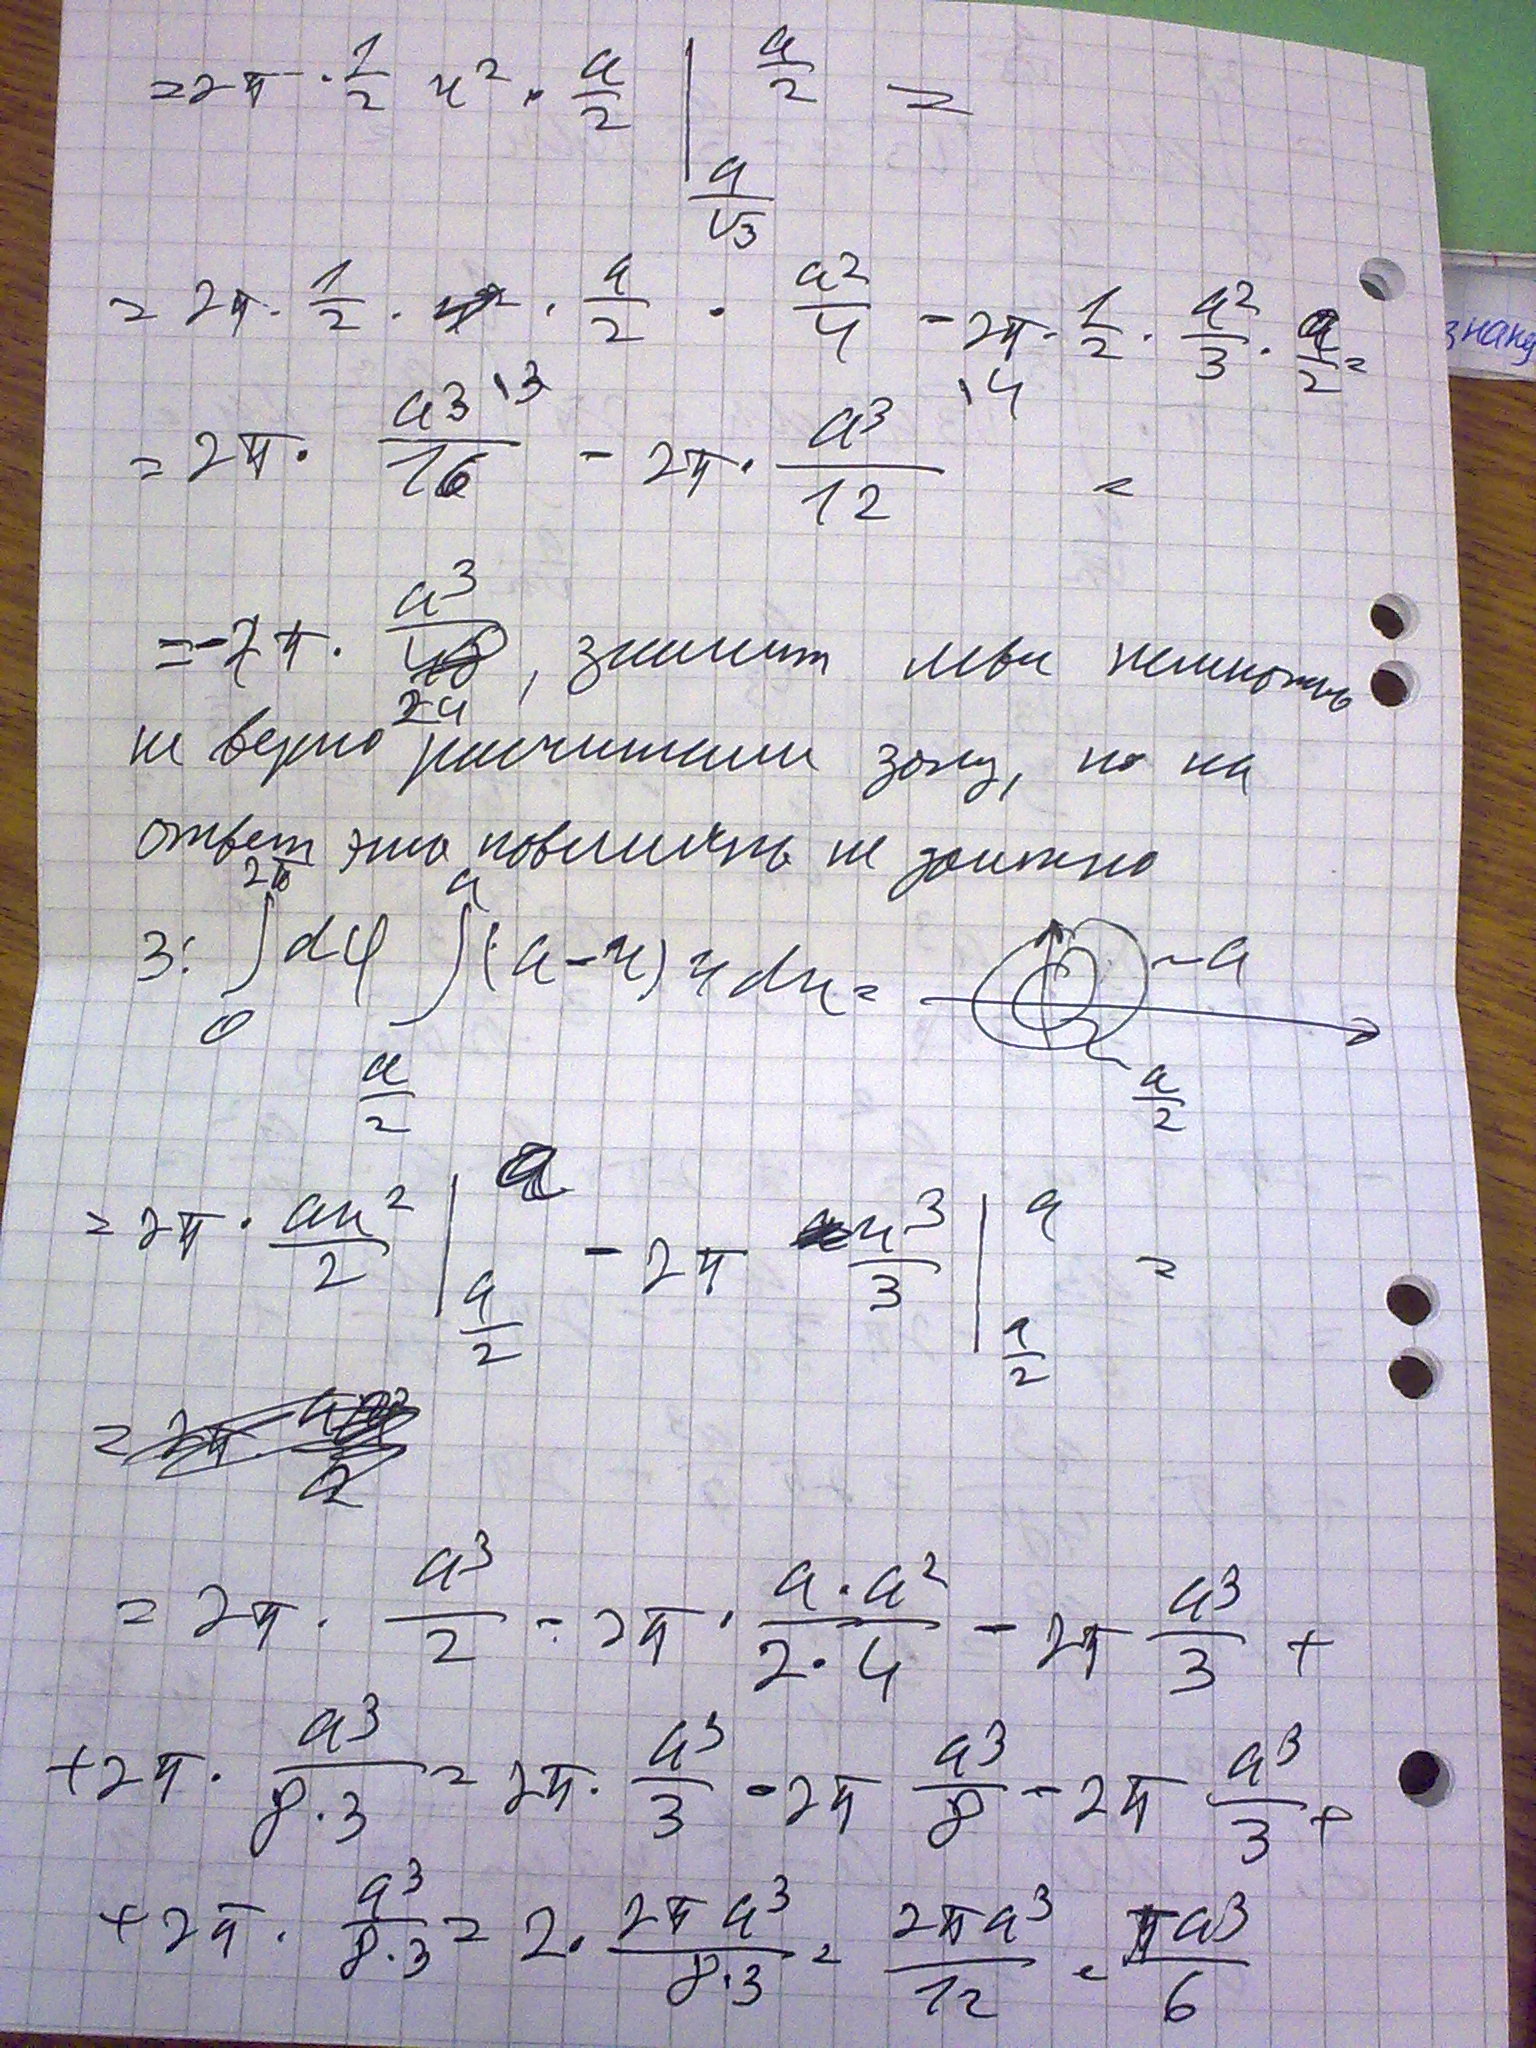 = 2π · 1/2 r² · a/2 |_{a/√3}^{a/2} =
= 2π · 1/2 · · a/2 · a²/4 - 2π · 1/2 · a²/3 · a/2 =
= 2π · a³\3/16 - 2π · a³\4/12 =
= -2π · a³/24, значит мы немножко
не верно расчитали зону, но на
ответ это повлиять не должно
3: ∫_0^{2π} dφ ∫_{a/2}^{a} (a-r) r dr = ~a a/2
= 2π · ar²/2 |_{a/2}^{a} - 2π r³/3 |_{a/2}^{a} =
=
= 2π · a³/2 - 2π · a·a²/2·4 - 2π a³/3 +
+ 2π · a³/8·3 = 2π · a³/3 - 2π a³/8 - 2π a³/3 +
+ 2π · a³/8·3 = 2 · 2πa³/8·3 = 2πa³/12 = πa³/6
знак